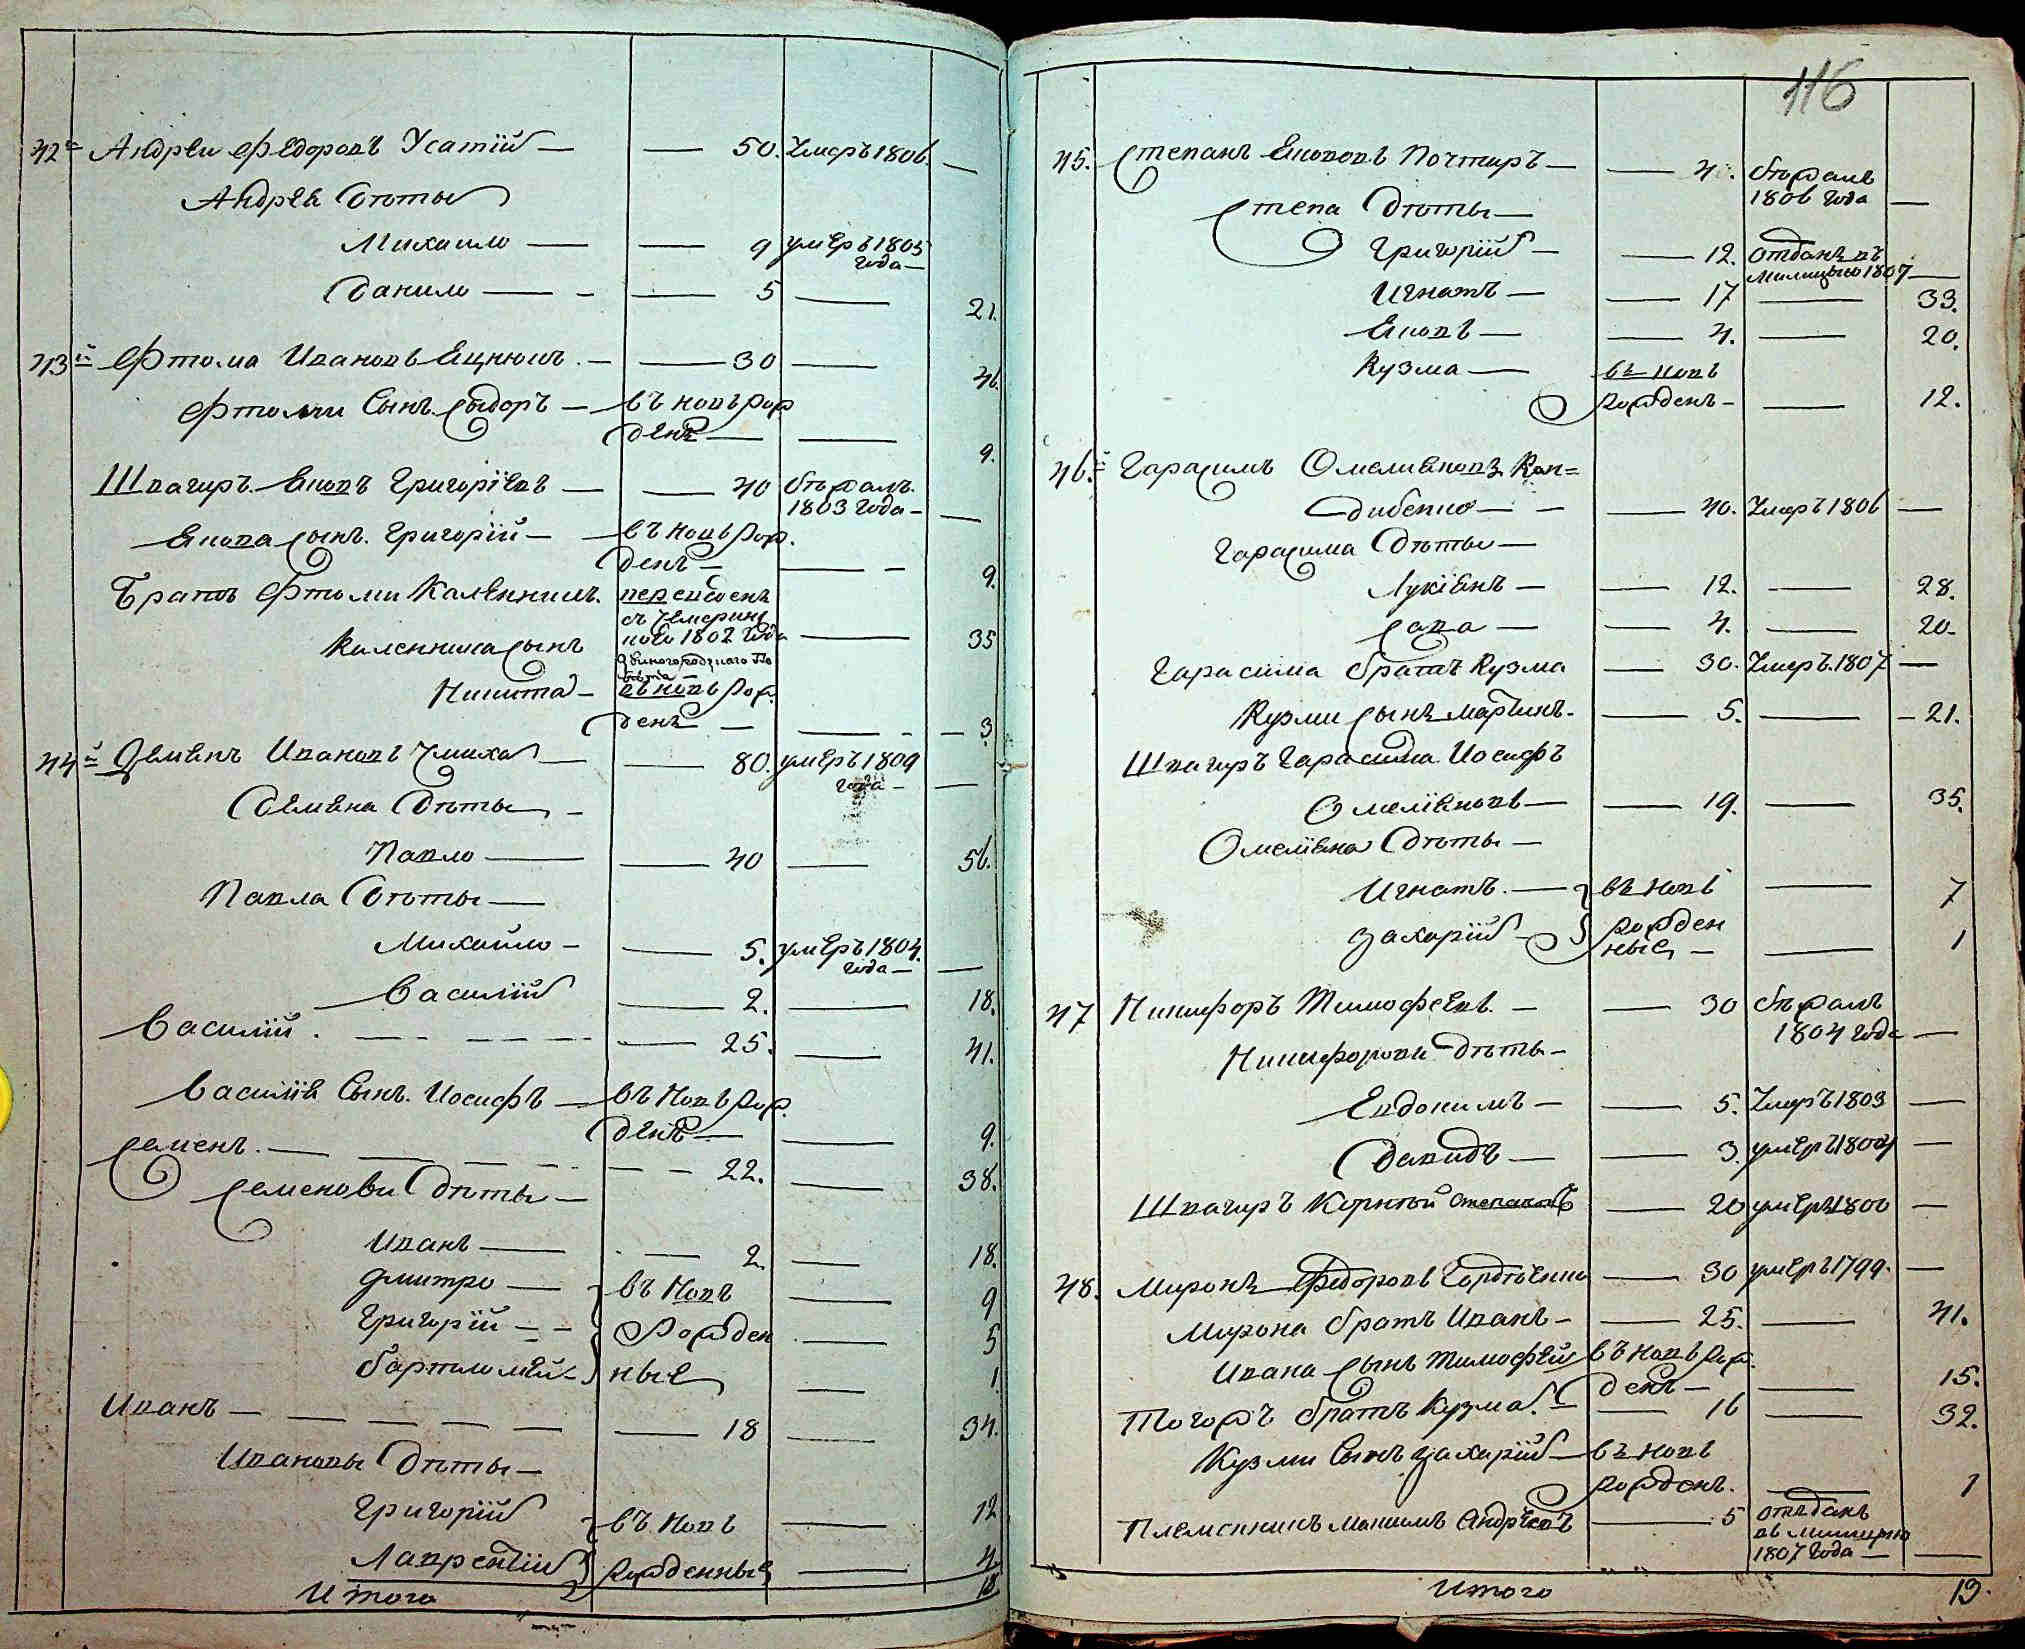 42й Андреи Федоровъ Усатій — — 50. Умеръ 1806. —
Андрея дѣты
Михаило — — 9 умеръ 1805
года —
Данило — — 5 — 21.
43й Фтома Ивановъ — 30 — 46.
Фтоми Сынъ Сыдоръ — въ новъ рож
денъ — — 9.
Швагиръ Яковъ Григоріевъ — — 40 бѣжалъ
1803 года — —
Якова сынъ Григорій — въ новъ рож.
денъ — — 9.
Братъ Фтоми Каленникъ. переведенъ
съ
кого 1802 года — 35
Каленника сынъ
Звиногородзкаго По
вѣта —
Никита — въ новъ рож.
денъ — — 3.
44й Демянъ Ивановъ — 80. умеръ 1809
года — —
Демяна дѣты —
Павло — — 40 — 56.
Павла дѣты —
Михайло — — 5. умеръ 1804.
года — —
Василій — 2. — 18.
Василий. — — 25. — 41.
Василія Сынъ Иосифъ — въ Новъ рож.
денъ — — 9.
Семенъ. — — 22. — 38.
Семенови дѣты —
Иванъ — — 2. — 18.
Дмитро — въ Новъ — 9
Григорій — — Рожден — 5
Бартломей — ные — 1.
Иванъ — — 18 — 34.
Ивановы дѣты —
Григорій въ Новъ — 12
Лаврентій рожденные — 4
Итого 18
116
45. Степанъ Якововъ — — 4. бѣжалъ
1806 года —
Степа дѣты —
Григорій — — 12. отданъ въ
милицыю 1807 —
Игнатъ — — 17 — 33.
Яковъ — — 4. — 20.
Кузма — въ новъ
рожденъ — — 12.
46й. Гарасимъ Омеляновъ Кан=
дибенко — — 40. Умеръ 1806 —
Гарасима дѣты —
Лукіянъ — — 12. — 28.
Сава — — 4. — 20.
Гарасима братъ Кузма — 30. Умеръ 1807 —
Кузми сынъ мартинъ. — 5. — 21.
Швагиръ Гарасима Иосифъ
Омеляновъ — — 19. — 35.
Омеляна дѣты —
Игнатъ. — въ новъ — 7
Захарій — рожден
ные — — 1
47 Никифоръ Тимофеевъ. — — 30 бѣжалъ
1804 года —
Никифорови дѣты —
Евдокимъ — — 5. Умеръ 1803 —
Давидъ — — 3. умеръ 1804 —
Швагиръ Корнѣй Степановъ — 20 умеръ 1800 —
48. Миронъ Федоровъ Гордѣенко — 30 умеръ 1799. —
Мирона братъ Иванъ — — 25. — 41.
Ивана сынъ Тимофей въ новъ рож.
денъ — — 15.
Тогожъ братъ Кузма. — — 16 — 32.
Кузми Сынъ Захарій — въ новъ
рожденъ. — 1
Племенникъ Максимъ Андрѣевъ — 5 отъданъ
въ милицию
1807 года — —
Итого 19.